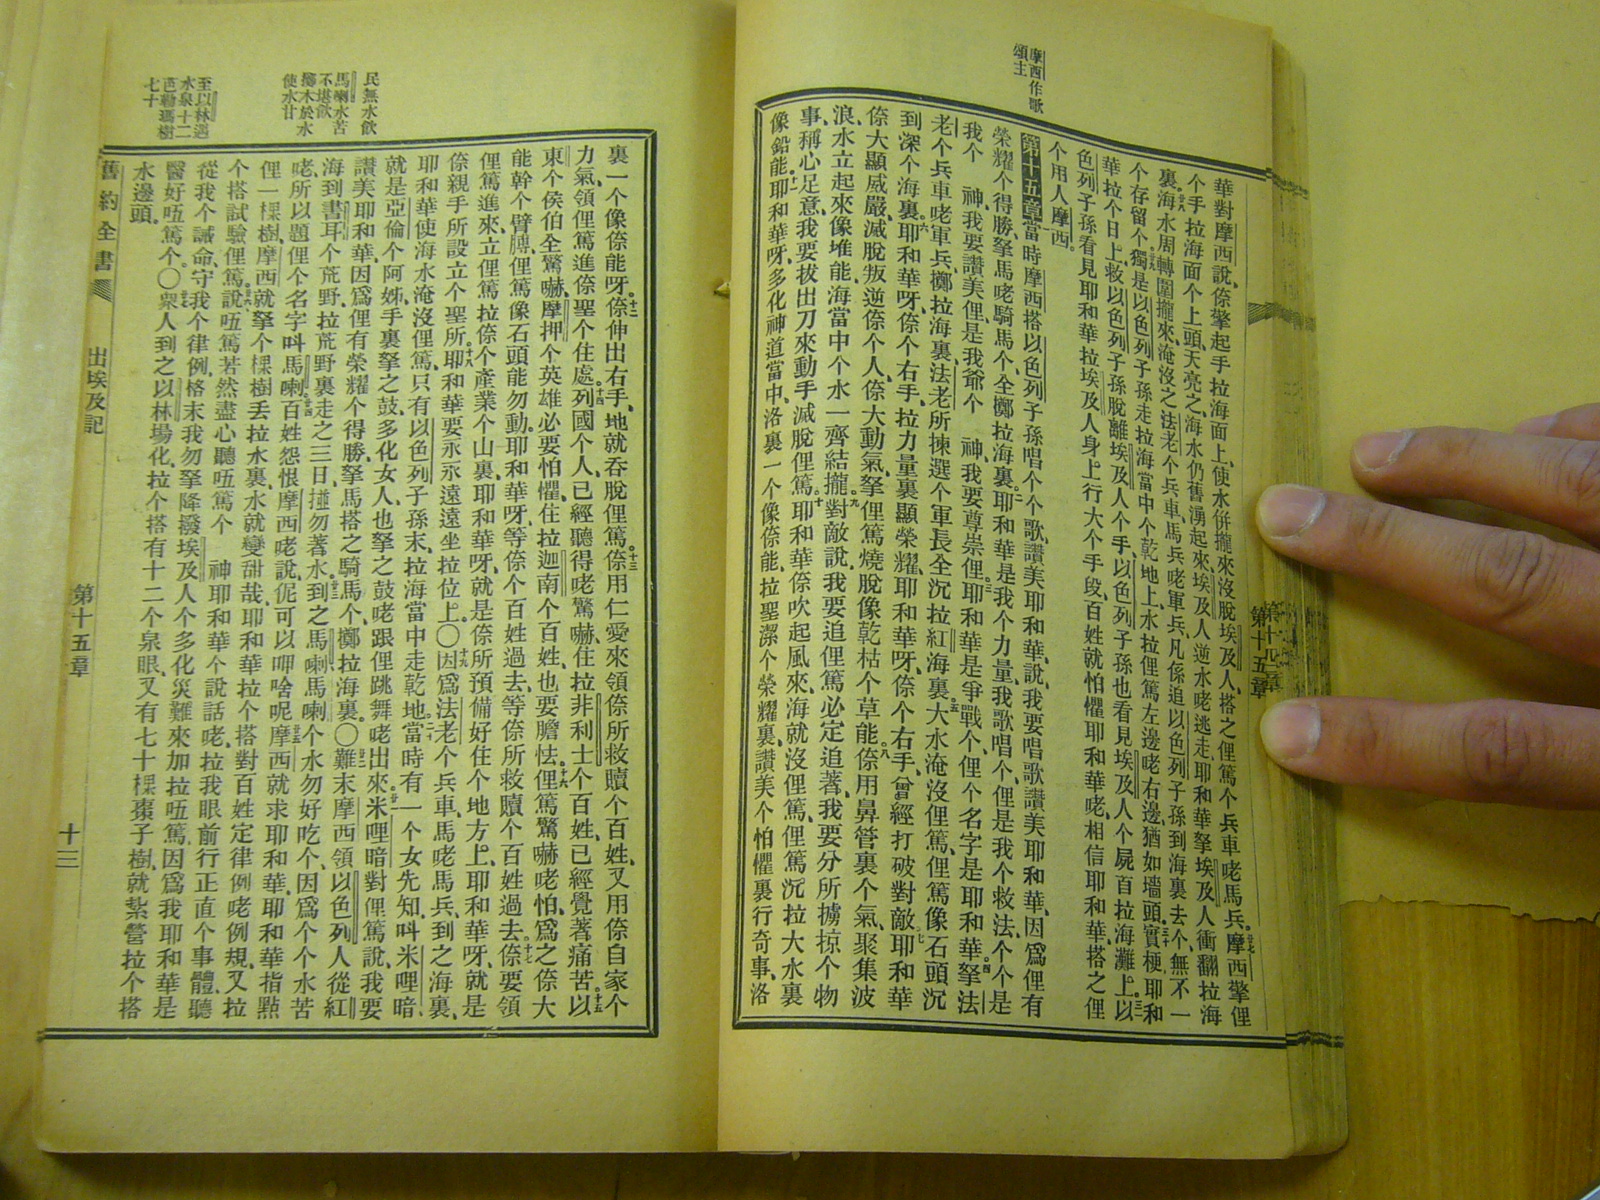 摩西作歌
頌主
華對摩西說、倷擎起手拉海面上、使水併攏來沒脫埃及人、搭之俚篤个兵車咾馬兵。摩西擎俚
个手拉海面个上頭、天亮之海水仍舊湧起來、埃及人逆水咾逃走、耶和華拏埃及人衝翻拉海
裏、海水周轉圍攏來、淹沒之法老个兵車、馬兵咾軍兵、凡係追以色列子孫到海裏去个、無不一
个存留个、獨是以色列子孫走拉海當中个乾地上、水拉俚篤左邊咾右邊、猶如墻頭實梗、耶和
華拉个日上、救以色列子孫脫離埃及人个手、以色列子孫也看見埃及人个屍百拉海灘上、以
色列子孫看見耶和華拉埃及人身上行大个手段、百姓就怕懼耶和華咾相信耶和華搭之俚
个用人摩西。
第十五章當時摩西搭以色列子孫唱个个歌、讚美耶和華說、我要唱歌讚美耶和華、因爲俚有
榮耀个得勝、拏馬咾騎馬个、全擲拉海裏、耶和華是我个力量、我歌唱个、俚是我个救法、个个是
我个 神、我要讚美俚、是我爺个 神、我要尊崇俚、耶和華是爭戰个、俚个名字是耶和華、拏法
老个兵車咾軍兵、擲拉海裏、法老所揀選个軍長、全沉拉紅海裏、大水淹沒俚篤、俚篤像石頭沉
到深个海裏、耶和華呀、倷个右手、拉力量裏顯榮耀、耶和華呀、倷个右手、曾經打破對敵、耶和華
倷大顯威嚴、滅脫叛逆倷个人、倷大動氣、拏俚篤燒脫像乾枯个草能、倷用鼻管裏个氣、聚集波
浪、水立起來像堆能、海當中个水一齊結攏、對敵說、我要追俚篤、必定追著、我要分所擄掠个物
事、稱心足意、我要拔出刀來、動手滅脫俚篤、耶和華倷吹起風來、海就沒俚篤、俚篤沉拉大水裏
像鉛能、耶和華呀、多化神道當中、洛裏一个像倷能、拉聖潔个榮耀裏、讚美个怕懼裏、行奇事、洛
第十五章
民無水飲
馬喇水苦
不堪飲
擲木於水
使水甘
至以林遇
水泉十二
芭勒瑪樹
七十
裏一个像倷能呀、倷伸出右手、地就吞脫俚篤。倷用仁愛來領倷所救贖个百姓、又用倷自家个
力氣、領俚篤進倷聖个住處。列國个人、已經聽得咾驚嚇、住拉非利士个百姓、已經覺著痛苦。以
東个侯伯全驚嚇、摩押个英雄必要怕懼、住拉迦南个百姓、也要膽怯。俚篤驚嚇咾怕、爲之倷大
能幹个臂膊、俚篤像石頭能勿動。耶和華呀、等倷个百姓過去、等倷所救贖个百姓過去。倷要領
俚篤進來、立俚篤拉倷个產業个山裏、耶和華呀、就是倷所預備好住个地方上、耶和華呀、就是
倷親手所設立个聖所。耶和華要永永遠遠坐拉位上。〇因爲法老个兵車、馬咾馬兵、到之海裏、
耶和華使海水淹沒俚篤、只有以色列子孫末、拉海當中走乾地、當時有一个女先知、叫米哩暗
就是亞倫个阿姊、手裏拏之鼓、多化女人、也拏之鼓咾跟俚跳舞咾出來、米哩暗對俚篤說、我要
讚美耶和華、因爲俚有榮耀个得勝、拏馬搭之騎馬个、擲拉海裏。〇難末摩西領以色列人從紅
海到書耳个荒野、拉荒野裏走之三日、碰勿著水、到之馬喇、馬喇个水勿好吃个、因爲个个水苦
咾、所以題俚个名字叫馬喇、百姓怨恨摩西咾說、伲可以呷啥呢、摩西就求耶和華、耶和華指點
俚一棵樹、摩西就拏个棵樹丟拉水裏、水就變甜哉、耶和華拉个搭對百姓定律例咾例規、又拉
个搭試驗俚篤、說、㕶篤若然盡心聽㕶篤个 神耶和華个說話咾、拉我眼前行正直个事體、聽
從我个誡命、守我个律例、恪末我勿拏降撥埃及人个多化災難來加拉㕶篤、因爲我耶和華是
醫好㕶篤个。〇衆人到之以林場化、拉个搭有十二个泉眼、又有七十棵棗子樹、就紮營拉个搭
水邊頭。
舊約全書 出埃及記 第十五章 十三